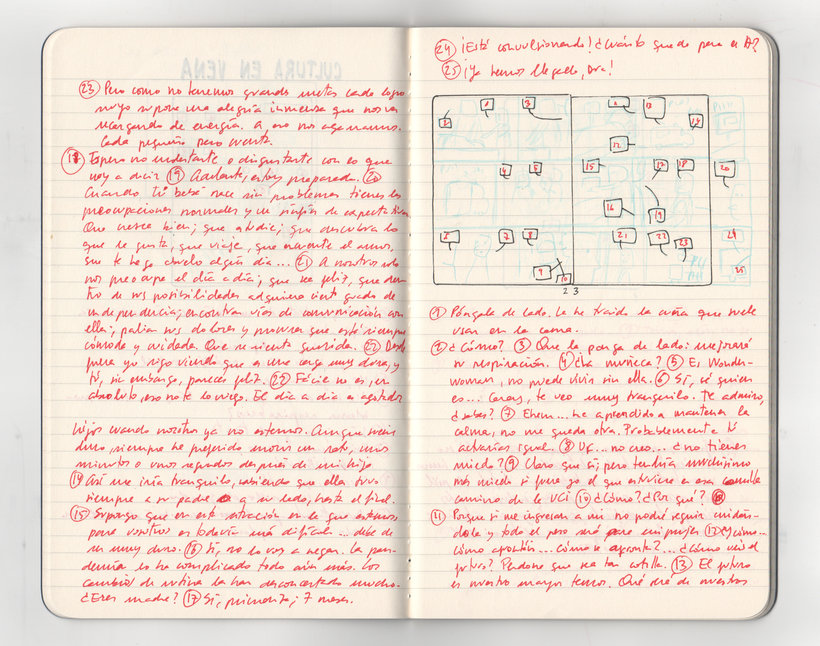 CULTURA EN VENA
23 Pero como no tenemos grandes metas cada logro
suyo supone una alegría inmensa que nos va
recargando de energía. A eso nos agarramos.
Cada pequeño paso cuenta.
18 Espero no molestarte o disgustarte con lo que
voy a decir 19 Adelante, estoy preparada. 20
Cuando tu bebé nace sin problemas tienes las
preocupaciones normales y un sinfín de expectativas
Que crezca bien; que estudie; que descubra lo
que le gusta, que viaje, que encuentre el amor,
que te haga abuelo algún día... 21 A nosotros solo
nos preocupa el día a día; que sea feliz, que den-
tro de sus posibilidades adquiera cierto grado de
independencia; encontrar vías de comunicación con
ella; paliar sus dolores y procurar que esté siempre
cómoda y cuidada. Que se sienta querida. 22 Desde
fuera yo sigo viendo que es una carga muy dura, y
tú, sin embargo, pareces feliz. 22 Fácil no es, en
absoluto, eso no te lo niego. El día a día es agotador
hijos cuando nosotros ya no estemos. Aunque sea
duro, siempre he preferido morir un rato, unos
minutos o unos segundos después de mi hija
14 Así me iría tranquilo, sabiendo que ella tuvo
siempre a su padre a su lado, hasta el final.
15 Supongo que en esta situación en la que estamos
para vosotros es todavía más difícil... debe de
ser muy duro. 16 Sí, no lo voy a negar. La pan-
demia lo ha complicado todo aún más. Los
cambios de rutina la han desconcertado mucho.
¿Eres madre? 17 Sí, primeriza; 7 meses.
24 ¡Está convulsionando! ¿Cuánto queda para el H?
25 ¡Ya hemos llegado, Dra!
1 3 2 13
2 14
12
4 5 15 17 18 20
16 19
6 7 8 21 22 23 24
9 10 25
2 3
1 Póngala de lado. Le he traído la cuña que suele
usar en la cama.
2 ¿Cómo? 3 Que la ponga de lado: mejorará
su respiración. 4 ¿La muñeca? 5 Es Wonder-
woman, no puede vivir sin ella. 6 Sí, sé quien
es... Caray, te veo muy tranquilo. Te admiro,
¿sabes? 7 Ehem... he aprendido a mantener la
calma, no me queda otra. Probablemente tú
actuarías igual. 8 Uf... no creo... ¿no tienes
miedo? 9 Claro que sí; pero tendría muchísimo
más miedo si fuera yo el que estuviera en esa camilla
camino de la UCI 10 ¿Cómo? ¿Por qué?
11 Porque si me ingresan a mí no podré seguir cuidán-
dola y todo el peso será para mi mujer 12 ¿Y cómo...
cómo afrontáis... cómo se afronta?... ¿Cómo veis el
futuro? Perdone que sea tan cotilla. 13 El futuro
es nuestro mayor temor. Qué será de nuestros